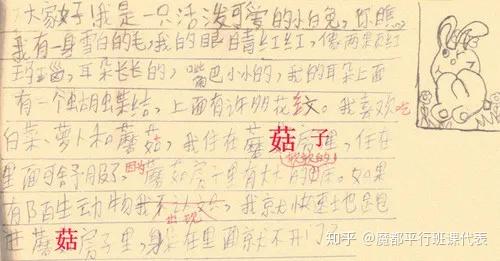 大家好!我是一只活泼可爱的小白兔,你瞧
我有一身雪白的毛,我的眼睛红红,像两颗红
玛瑙,耳朵长长的,嘴巴小小的,我的耳朵上面
有一个蝴蝶结,上面有许多花纹。我喜欢吃
白菜、萝卜和蘑菇,我住在蘑菇房子里,住在
里面可舒服了,因为蘑菇房子里有大大的软软的床。如果
有陌生动物出现,我就快速士也跑
进蘑菇房子里,身在里面就不开门
知乎 @魔都平行班课代表